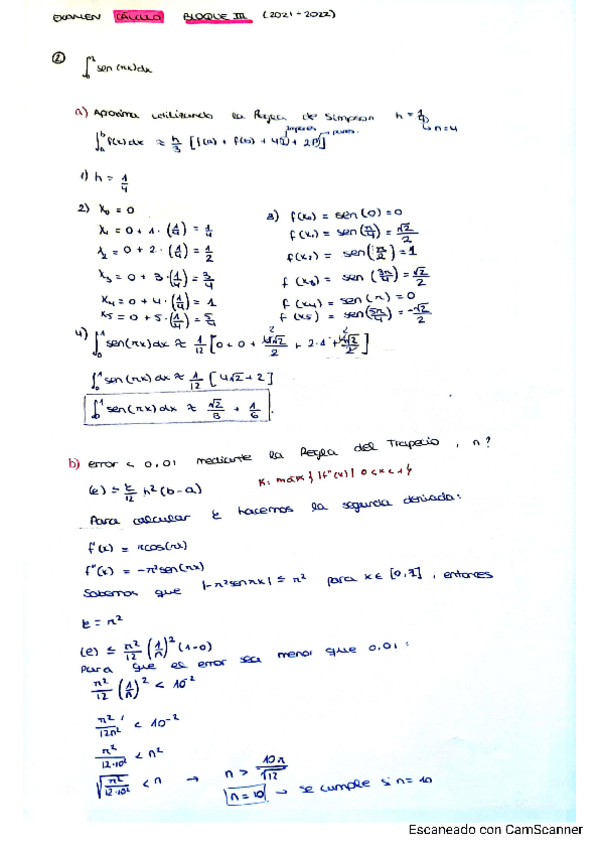 EXAMEN CÁLCULO BLOQUE III (2021-2022)
② ∫ sen(πx)dx
a) Aproxima utilizando la Regla de Simpson h = 1/4
impares pares n=4
∫ₐᵇ f(x)dx ≈ h/3 [f(a) + f(b) + 4∑ + 2∑]
1) h = 1/4
2) x₀ = 0
x₁ = 0 + 1·(1/4) = 1/4
x₂ = 0 + 2·(1/4) = 1/2
x₃ = 0 + 3·(1/4) = 3/4
x₄ = 0 + 4·(1/4) = 1
x₅ = 0 + 5·(1/4) = 5/4
3) f(x₀) = sen(0) = 0
f(x₁) = sen(π/4) = √2/2
f(x₂) = sen(π/2) = 1
f(x₃) = sen(3π/4) = √2/2
f(x₄) = sen(π) = 0
f(x₅) = sen(5π/4) = -√2/2
4) ∫₀¹ sen(πx)dx ≈ 1/12 [0 + 0 + 4√2/2 + 2·1 + 4√2/2]
∫₀¹ sen(πx)dx ≈ 1/12 [4√2 + 2]
∫₀¹ sen(πx)dx ≈ √2/3 + 1/6
b) error < 0,01 mediante la Regla del Trapecio, n?
(e) ≤ k/12 h²(b-a)
K: máx { |f''(x)| 0<x<1 }
Para calcular k hacemos la segunda derivada:
f'(x) = πcos(πx)
f''(x) = -π²sen(πx)
Sabemos que |-π²senπx| ≤ π² para x ∈ [0,1], entonces
k = π²
(e) ≤ π²/12 (1/n)² (1-0)
Para que el error sea menor que 0,01:
π²/12 (1/n)² < 10⁻²
π²/12n² < 10⁻²
π²/12·10⁻² < n²
√(π²/12·10⁻²) < n → n > 10π/√12
n=10 → se cumple si n=10
Escaneado con CamScanner